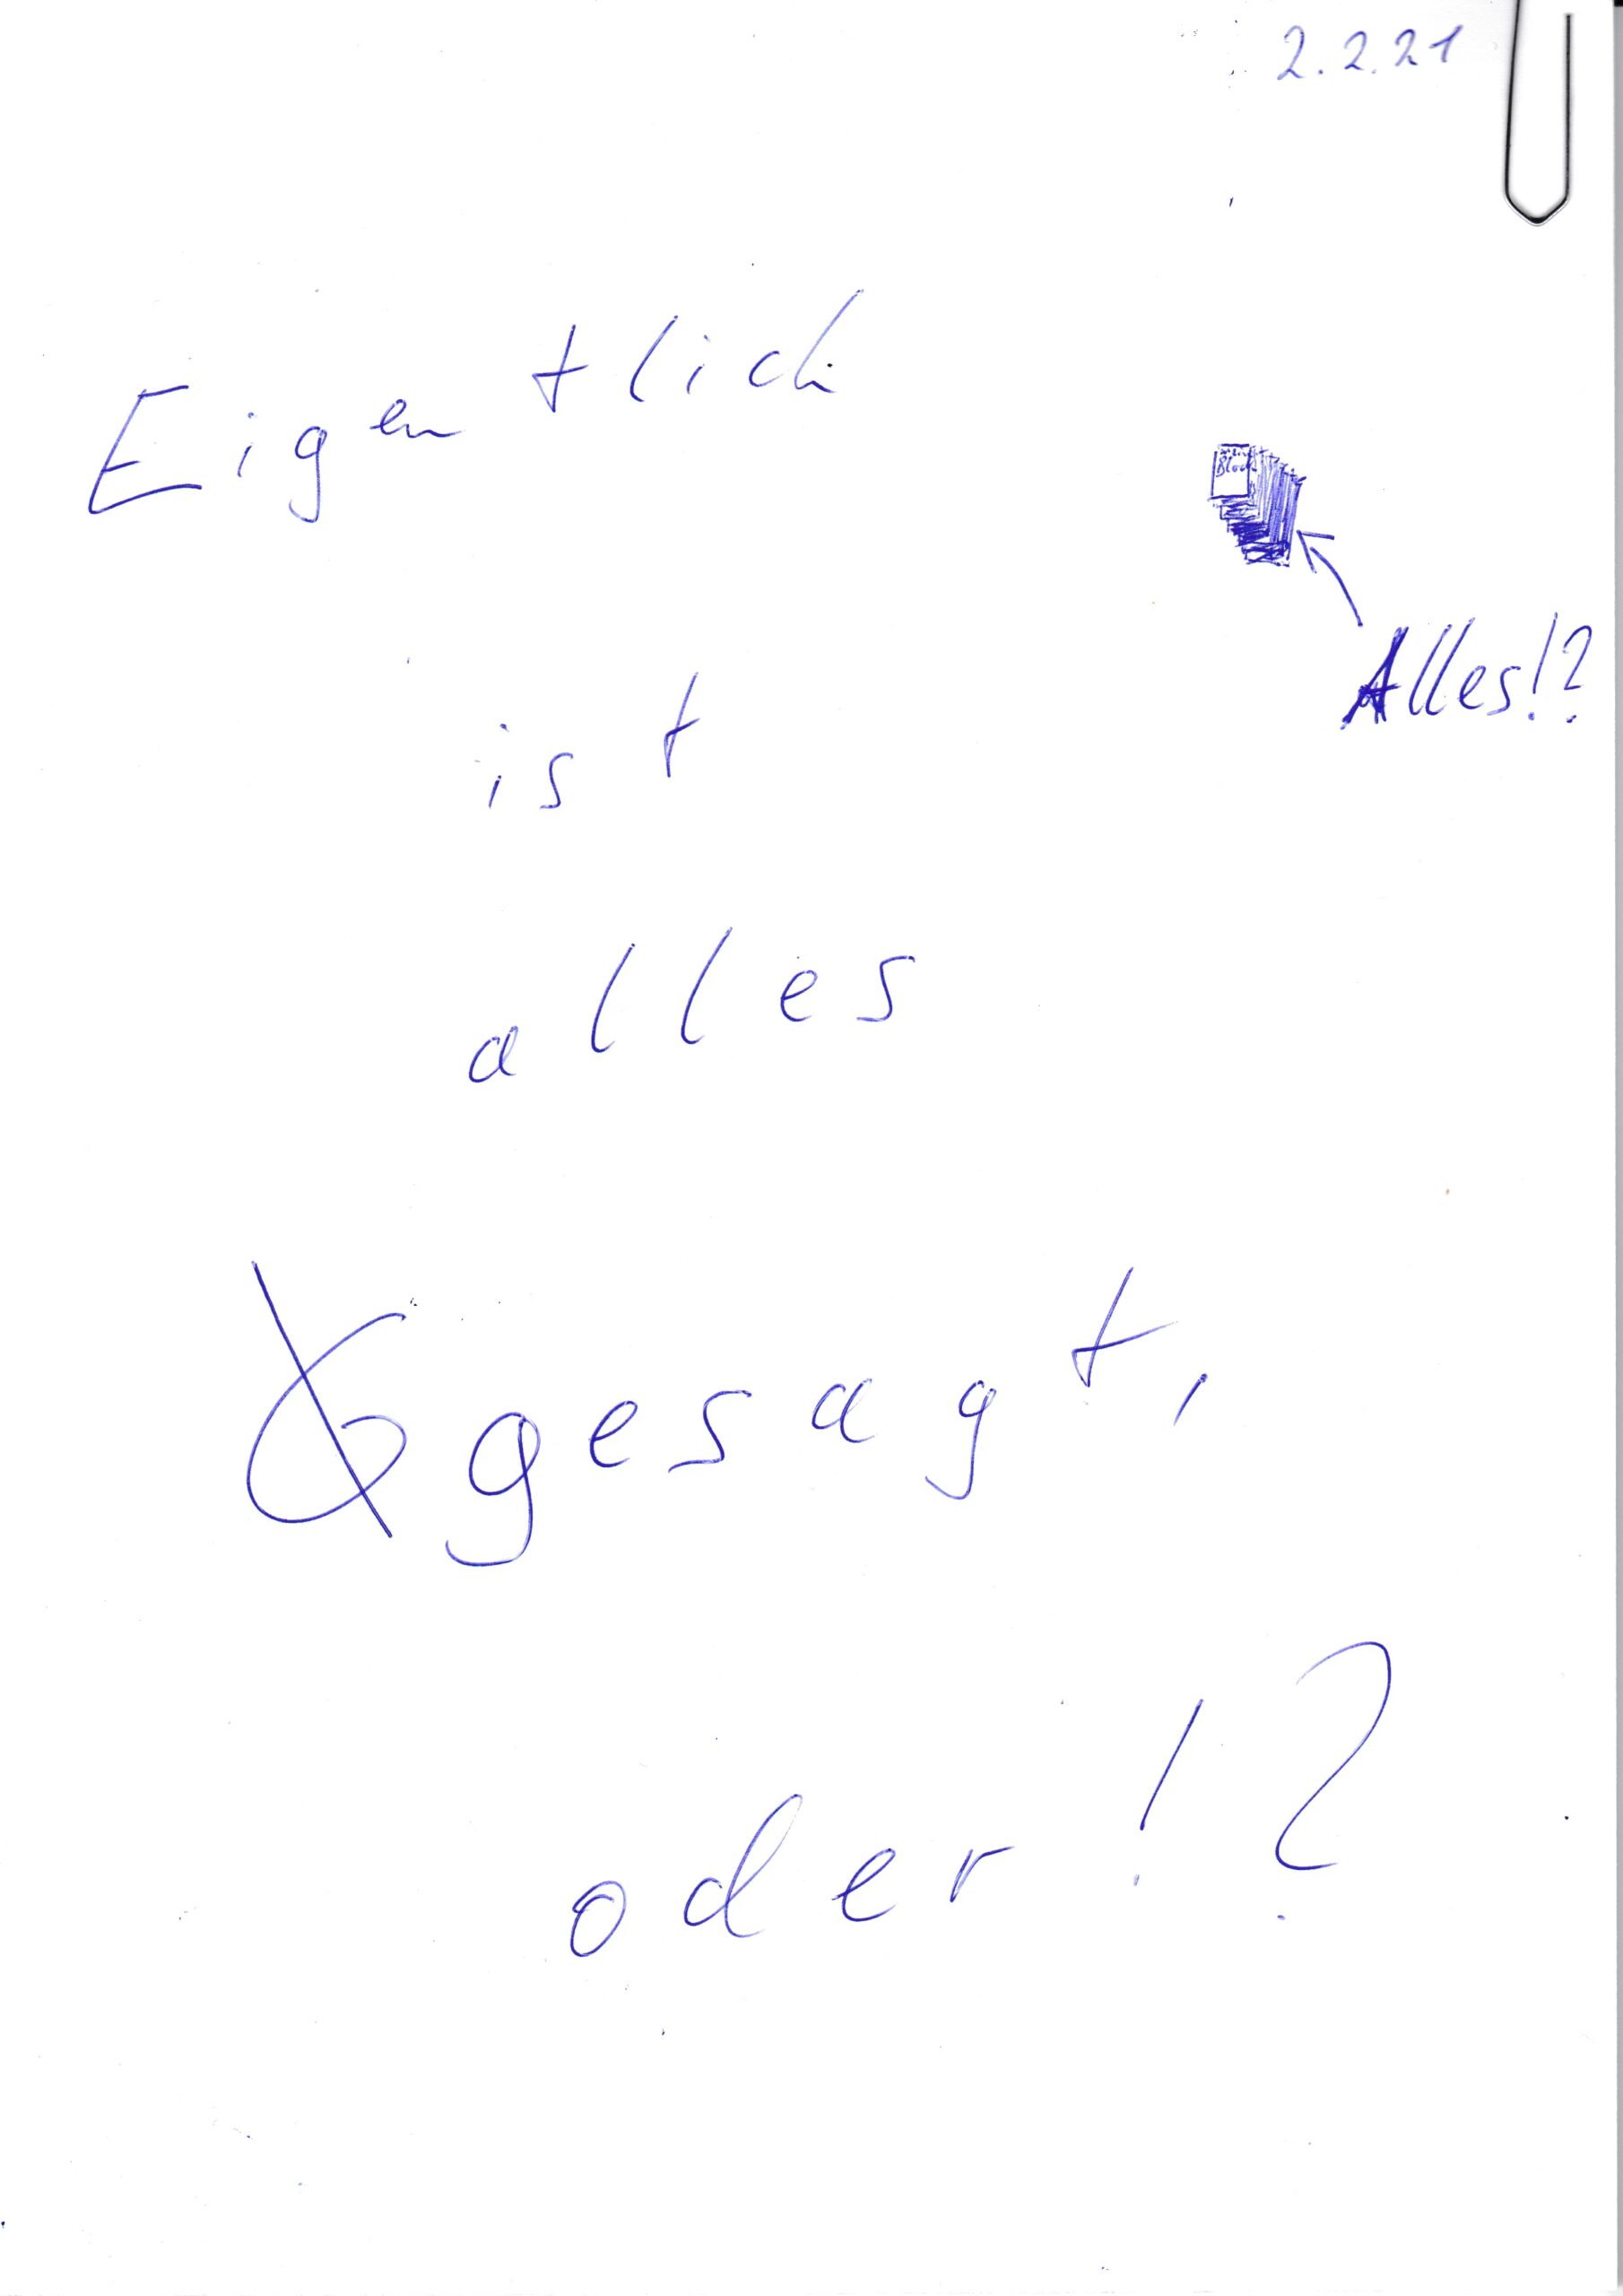 2.2.21
Eigentlich
Block
Alles!?
ist
alles
gesagt,
oder!?